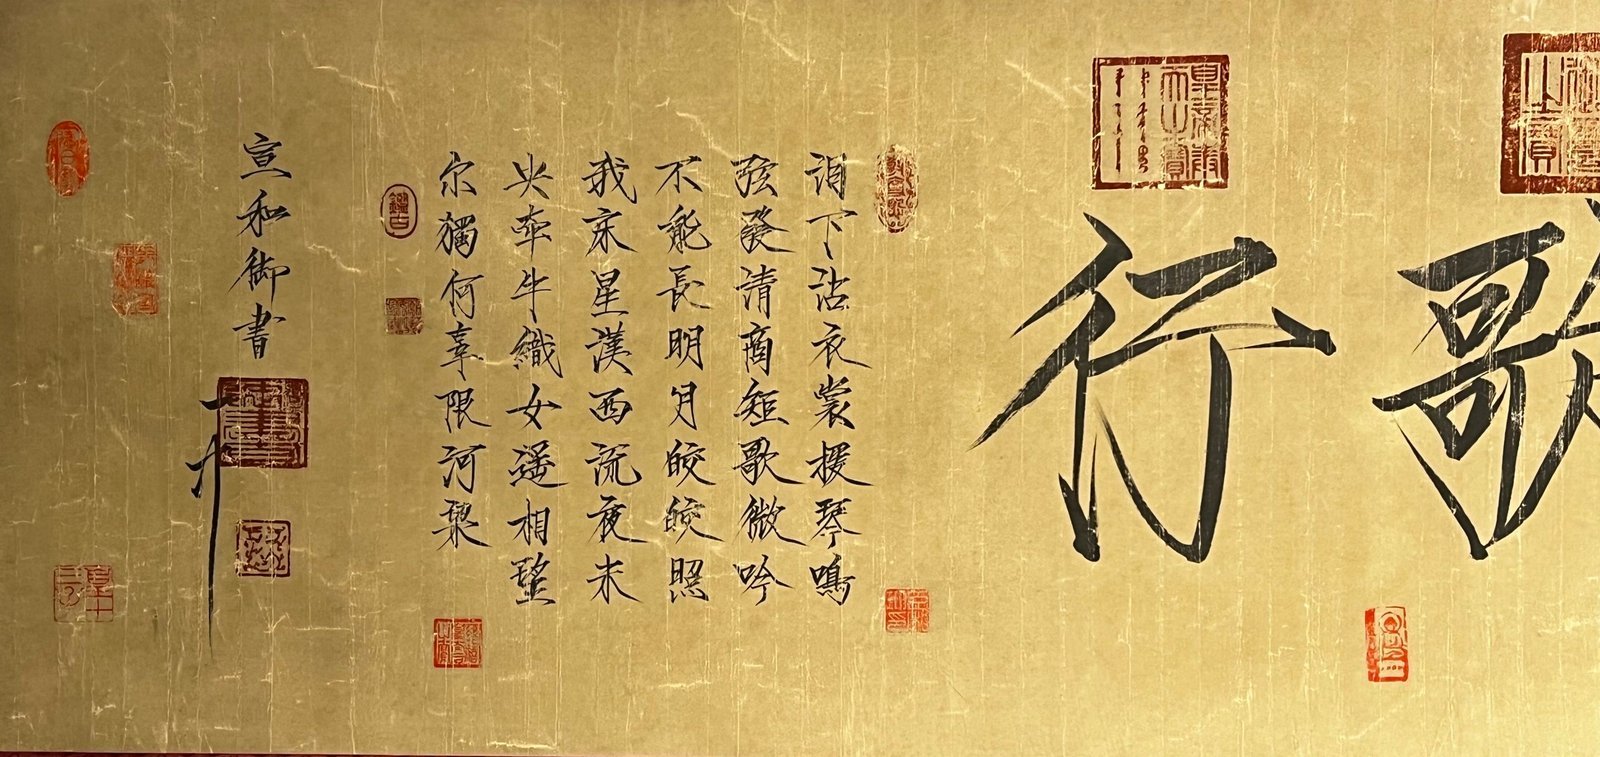 歌行
泪下沾衣裳援琴鳴
弦發清商短歌微吟
不能長明月皎皎照
我床星漢西流夜未
央牽牛織女遥相望
尔獨何辜限河梁
宣和御書